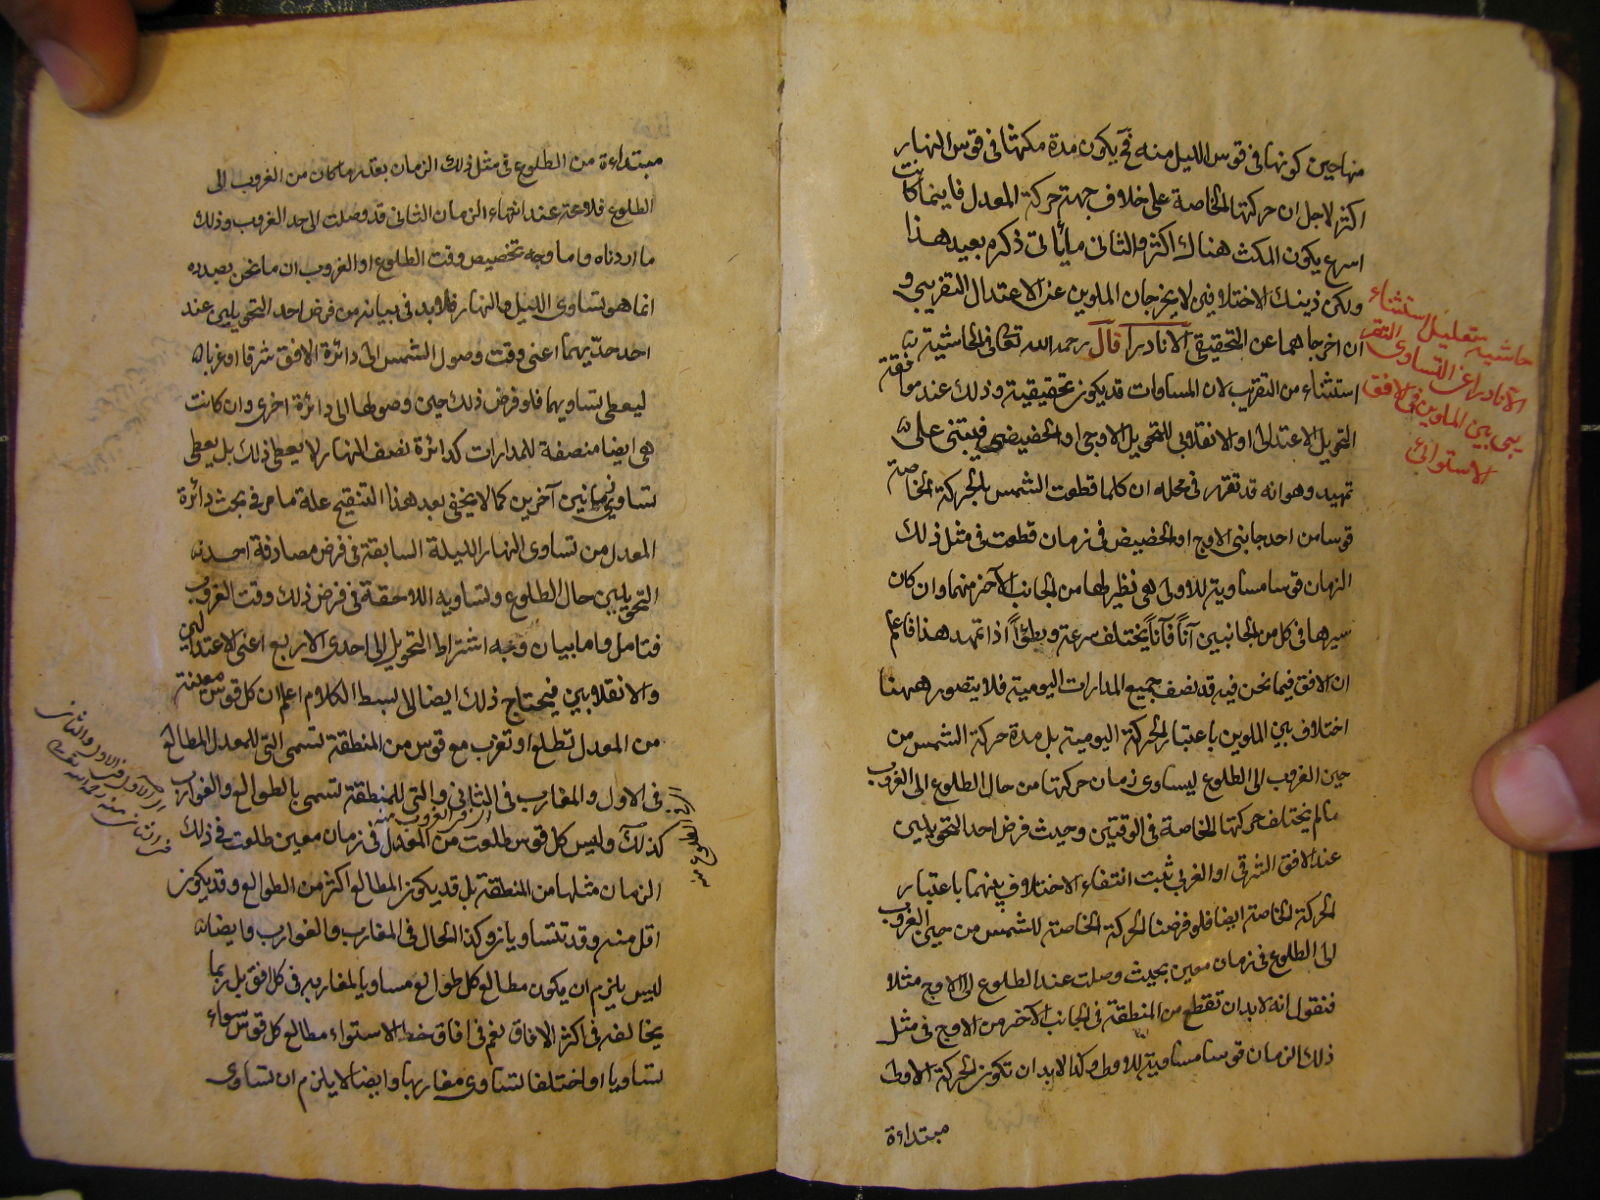 منها حين كونها فى قوس الليل منه فح يكون مدة مكثها فى قوس النهار
اكثر لاجل ان حركتها الخاصة على خلاف جهة حركة المعدل فاينما كانت
اسرع يكون المكث هناك اكثر والثانى ما يأتى ذكره بعيد هذا
ولكن ذينك الاختلافين لا يخرجان الملوين عن الاعتدال التقريبى و
ان اخرجاهما عن التحقيقى الا نادرا قال رحمه الله تعالى فى الحاشية
استثناء من التقريب لان المساوات قد يكون تحقيقية وذلك عند موافقة
التحويل الاعتدالى او الانقلابى للتحويل الاوجى او الحضيضى فيبتنى على
تمهيد وهو انه قد تقرر فى محله ان كلما قطعت الشمس بالحركة الخاصة
قوسا من احد جانبى الاوج او الحضيض فى زمان قطعت فى مثل ذلك
الزمان قوسا مساوية للاولى هى نظيرطها من الجانب الآخر منهما وان كان
سيرها فى كل من الجانبين آناً فآناً يختلف سرعة وبطؤاً اذا تمهد هذا فاعلم
ان الافق فيما نحن فيه قد نصف جميع المدارات اليومية فلا يتصور ههنا
اختلاف بين الملوين باعتبار الحركة اليومية بل مدة حركة الشمس من
حين الغروب الى الطلوع ليساوى زمان حركتها من حال الطلوع الى الغروب
ما لم يختلف حركتها الخاصة فى الوقتين وحيث فرض احد التحويلين
عند الافق الشرقى او الغربى ثبت انتفاء الاختلاف بينهما باعتبار
الحركة الخاصة ايضا فلو فرضنا الحركة الخاصة للشمس من حين الغروب
الى الطلوع فى زمان معين بحيث وصلت عند الطلوع الى الاوج مثلا
فنقول انه لا بد ان تقطع من المنطقة فى الجانب الآخر من الاوج فى مثل
ذلك الزمان قوسا مساوية للاولى وكذا لا بد ان تكون الحركة الاولى
مبتداءة
حاشية تعليل استثناء
الا نادرا عن التساوى التقر
يبى بين الملوين فى الافق
الاستوائى
مبتداءة من الطلوع فى مثل ذلك الزمان بقدر ما كان من الغروب الى
الطلوع فلا محة عند انتهاء الزمان الثانى قد وصلت الى حد الغروب وذلك
ما اردناه واما وجه تخصيص وقت الطلوع او الغروب ان ما نحن بصدده
انما هو تساوى الليل والنهار فلا بد فى بيانه من فرض احد التحويلين عند
احد حديهما اعنى وقت وصول الشمس الى دائرة الافق شرقا او غربا
ليعطى تساويهما فلو فرض ذلك حين وصولها الى دائرة اخرى وان كانت
هى ايضا منصفة للمدارات كدائرة نصف النهار لا يعطى ذلك بل يعطى
تساوى زمانين آخرين كما لا يخفى بعد هذا التنقيح علة ما مر فى بحث دائرة
المعدل من تساوى النهار الليلة السابقة فى فرض مصادفة احد
التحويلين حال الطلوع وتساويه اللاحقة فى فرض ذلك وقت الغروب
فتامل واما بيان وجه اشتراط التحويل الى احدى الاربع اعنى الاعتدالين
والانقلابين فيحتاج ذلك ايضا الى بسط الكلام اعلم ان كل قوس معينة
من المعدل تطلع او تغرب مع قوس من المنطقة تسمى التى للمعدل المطالع
فى الاول والمغارب فى الثانى والتى للمنطقة تسمى بالطوالع والغوارب
كذلك وليس كل قوس طلعت من المعدل فى زمان معين طلعت فى ذلك
الزمان مثلها من المنطقة بل قد يكون المطالع اكثر من الطوالع وقد يكون
اقل منه وقد تتساويان وكذا الحال فى المغارب والغوارب وايضا
ليس يلزم ان يكون مطالع كل طوالع مساويا لمغاربه فى كل افق بل ربما
يخالفه فى اكثر الافاق نعم فى افاق خط الاستواء مطالع كل قوس سواء
تساويا او اختلفا تساوى مغاربها وايضا لا يلزم ان تساوى